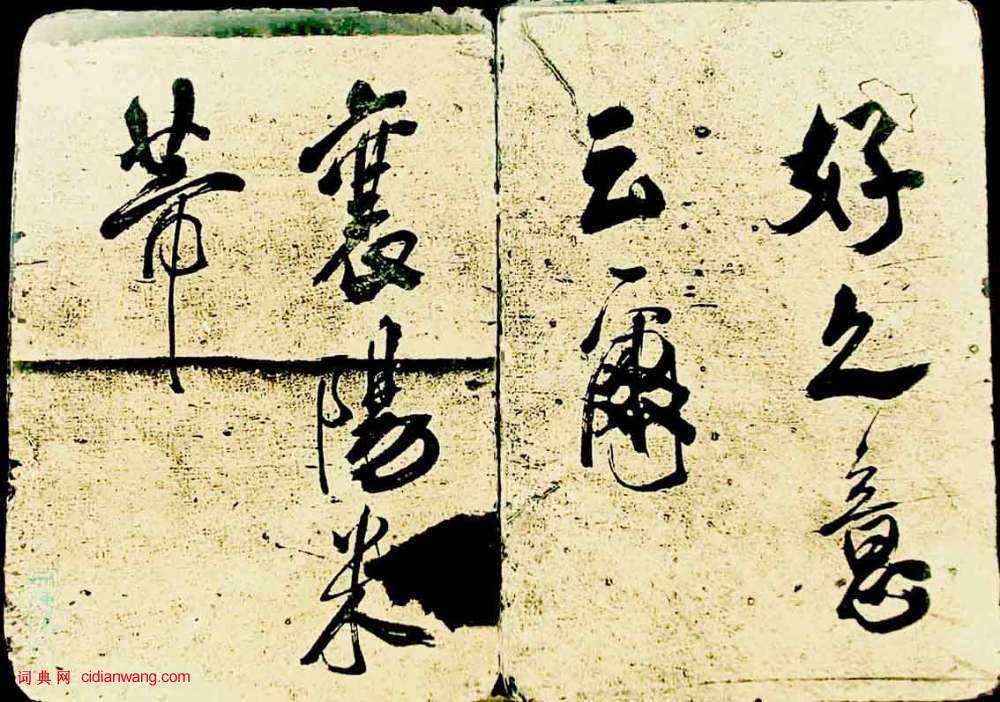 好之意
云爾
襄陽米
芾
词典网 cidianwang.com